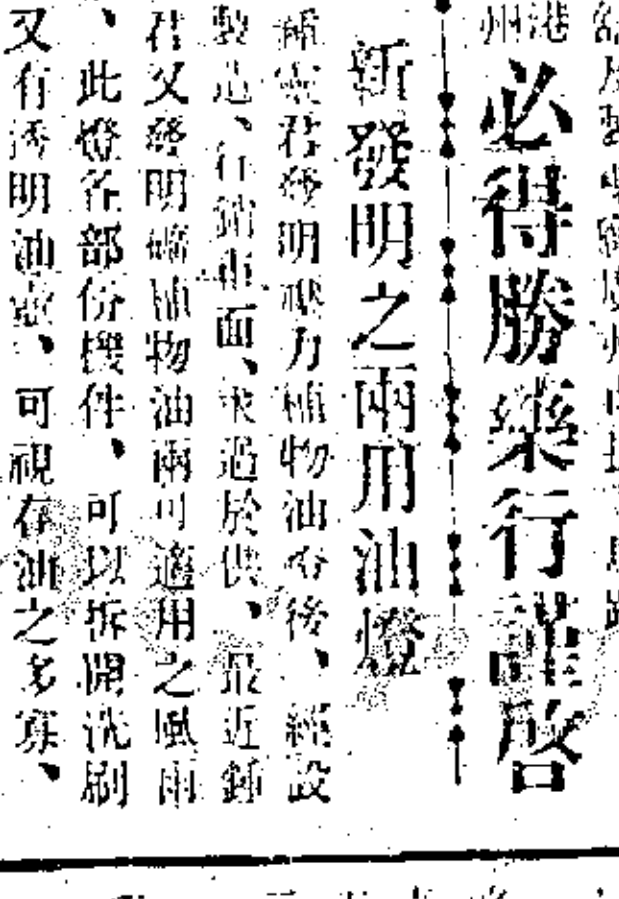 港
州
必得勝藥行謹啓
新發明之兩用油燈
鍾靈君發明壓力植物油燈後、經設
製造、行銷市面、求過於供、最近鍾
君又發明礦植物油兩可適用之風雨
、此燈各部份機件、可以拆開洗刷
又有透明油壺、可視存油之多寡、